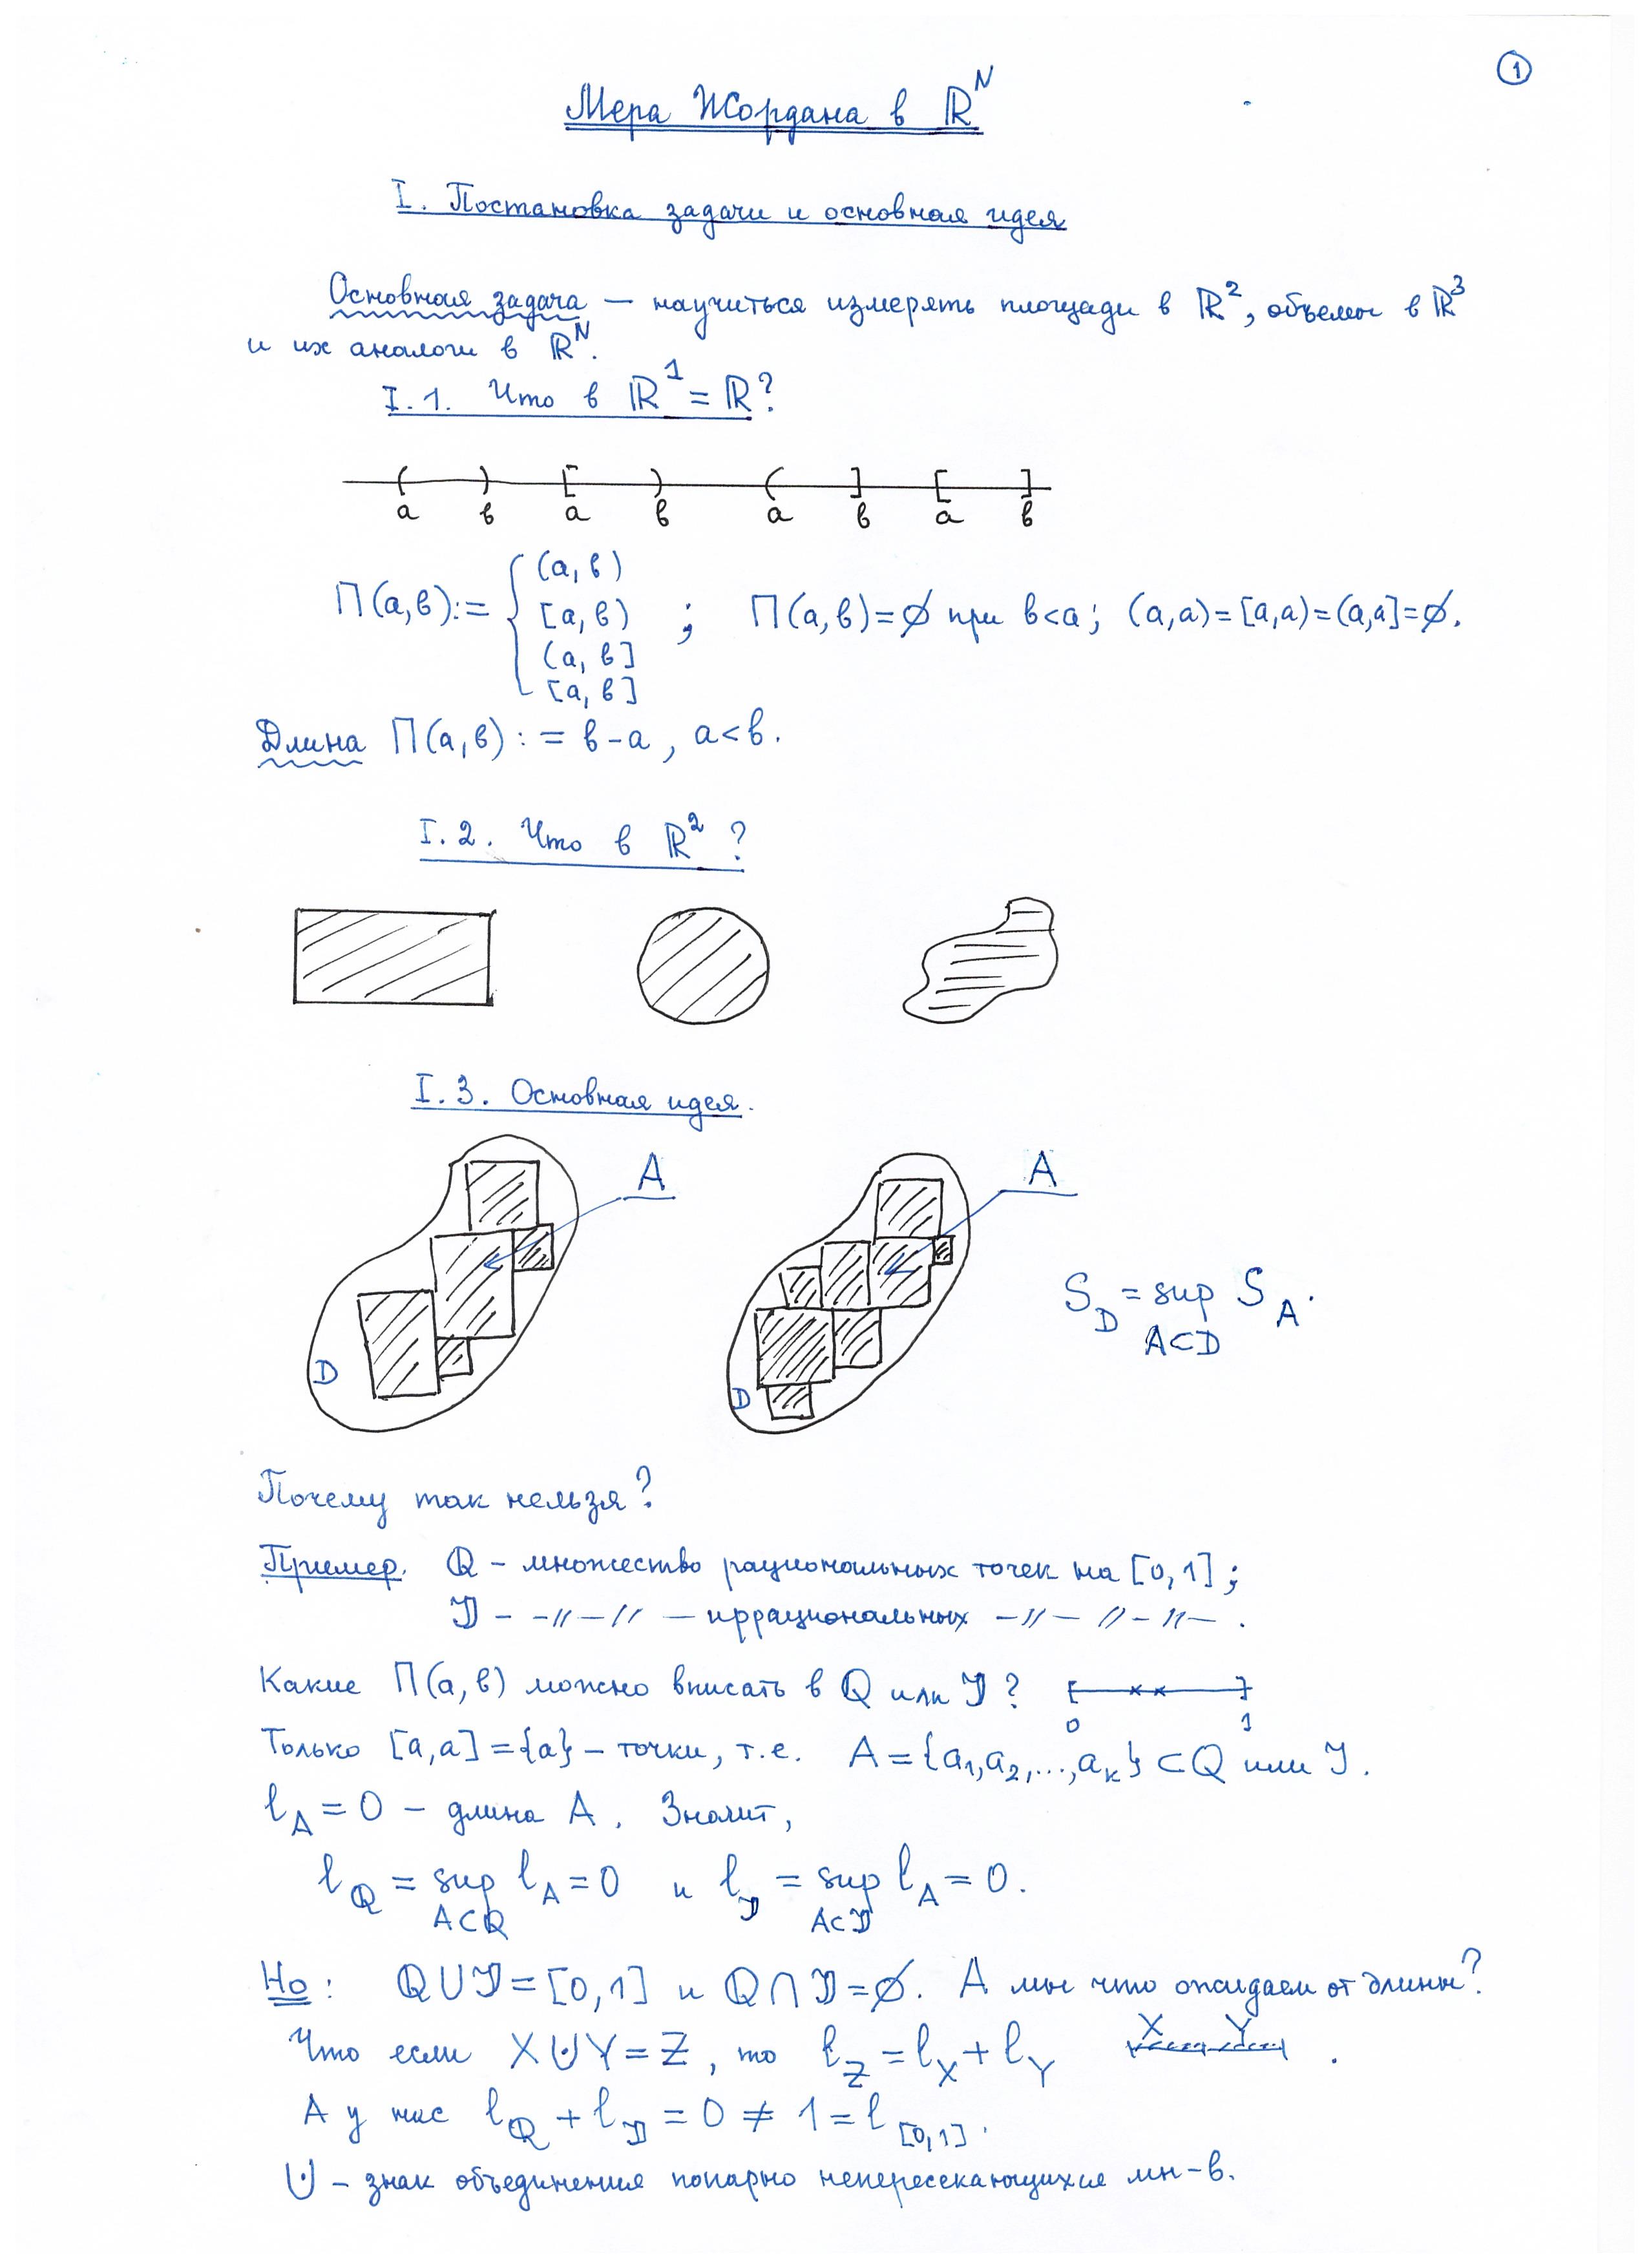 ①
Мера Жордана в ℝᴺ
I. Постановка задачи и основная идея
Основная задача — научиться измерять площади в ℝ², объемы в ℝ³
и их аналоги в ℝᴺ.
I.1. Что в ℝ¹ = ℝ?
a в a в a в a в
П(a,в):= { (a,в) [a,в) (a,в] [a,в] ; П(a,в)=∅ при в<a; (a,a)=[a,a)=(a,a]=∅.
Длина П(a,в) := в-a, a<в.
I.2. Что в ℝ² ?
I.3. Основная идея.
A A
D D S_D = sup_{A⊂D} S_A.
Почему так нельзя?
Пример. ℚ – множество рациональных точек на [0,1];
𝕁 – -//-//- иррациональных -//-//-//- .
Какие П(a,в) можно вписать в ℚ или 𝕁 ?
0 1
Только [a,a]={a} – точки, т.е. A={a₁,a₂,...,aₖ}⊂ℚ или 𝕁.
l_A = 0 – длина A. Значит,
l_ℚ = sup_{A⊂ℚ} l_A = 0 и l_𝕁 = sup_{A⊂𝕁} l_A = 0.
Но: ℚ∪𝕁=[0,1] и ℚ∩𝕁=∅. А мы что ожидаем от длины?
Что если X⊍Y=Z, то l_Z = l_X + l_Y X Y .
А у нас l_ℚ + l_𝕁 = 0 ≠ 1 = l_[0,1].
⊍ – знак объединения попарно непересекающихся мн-в.